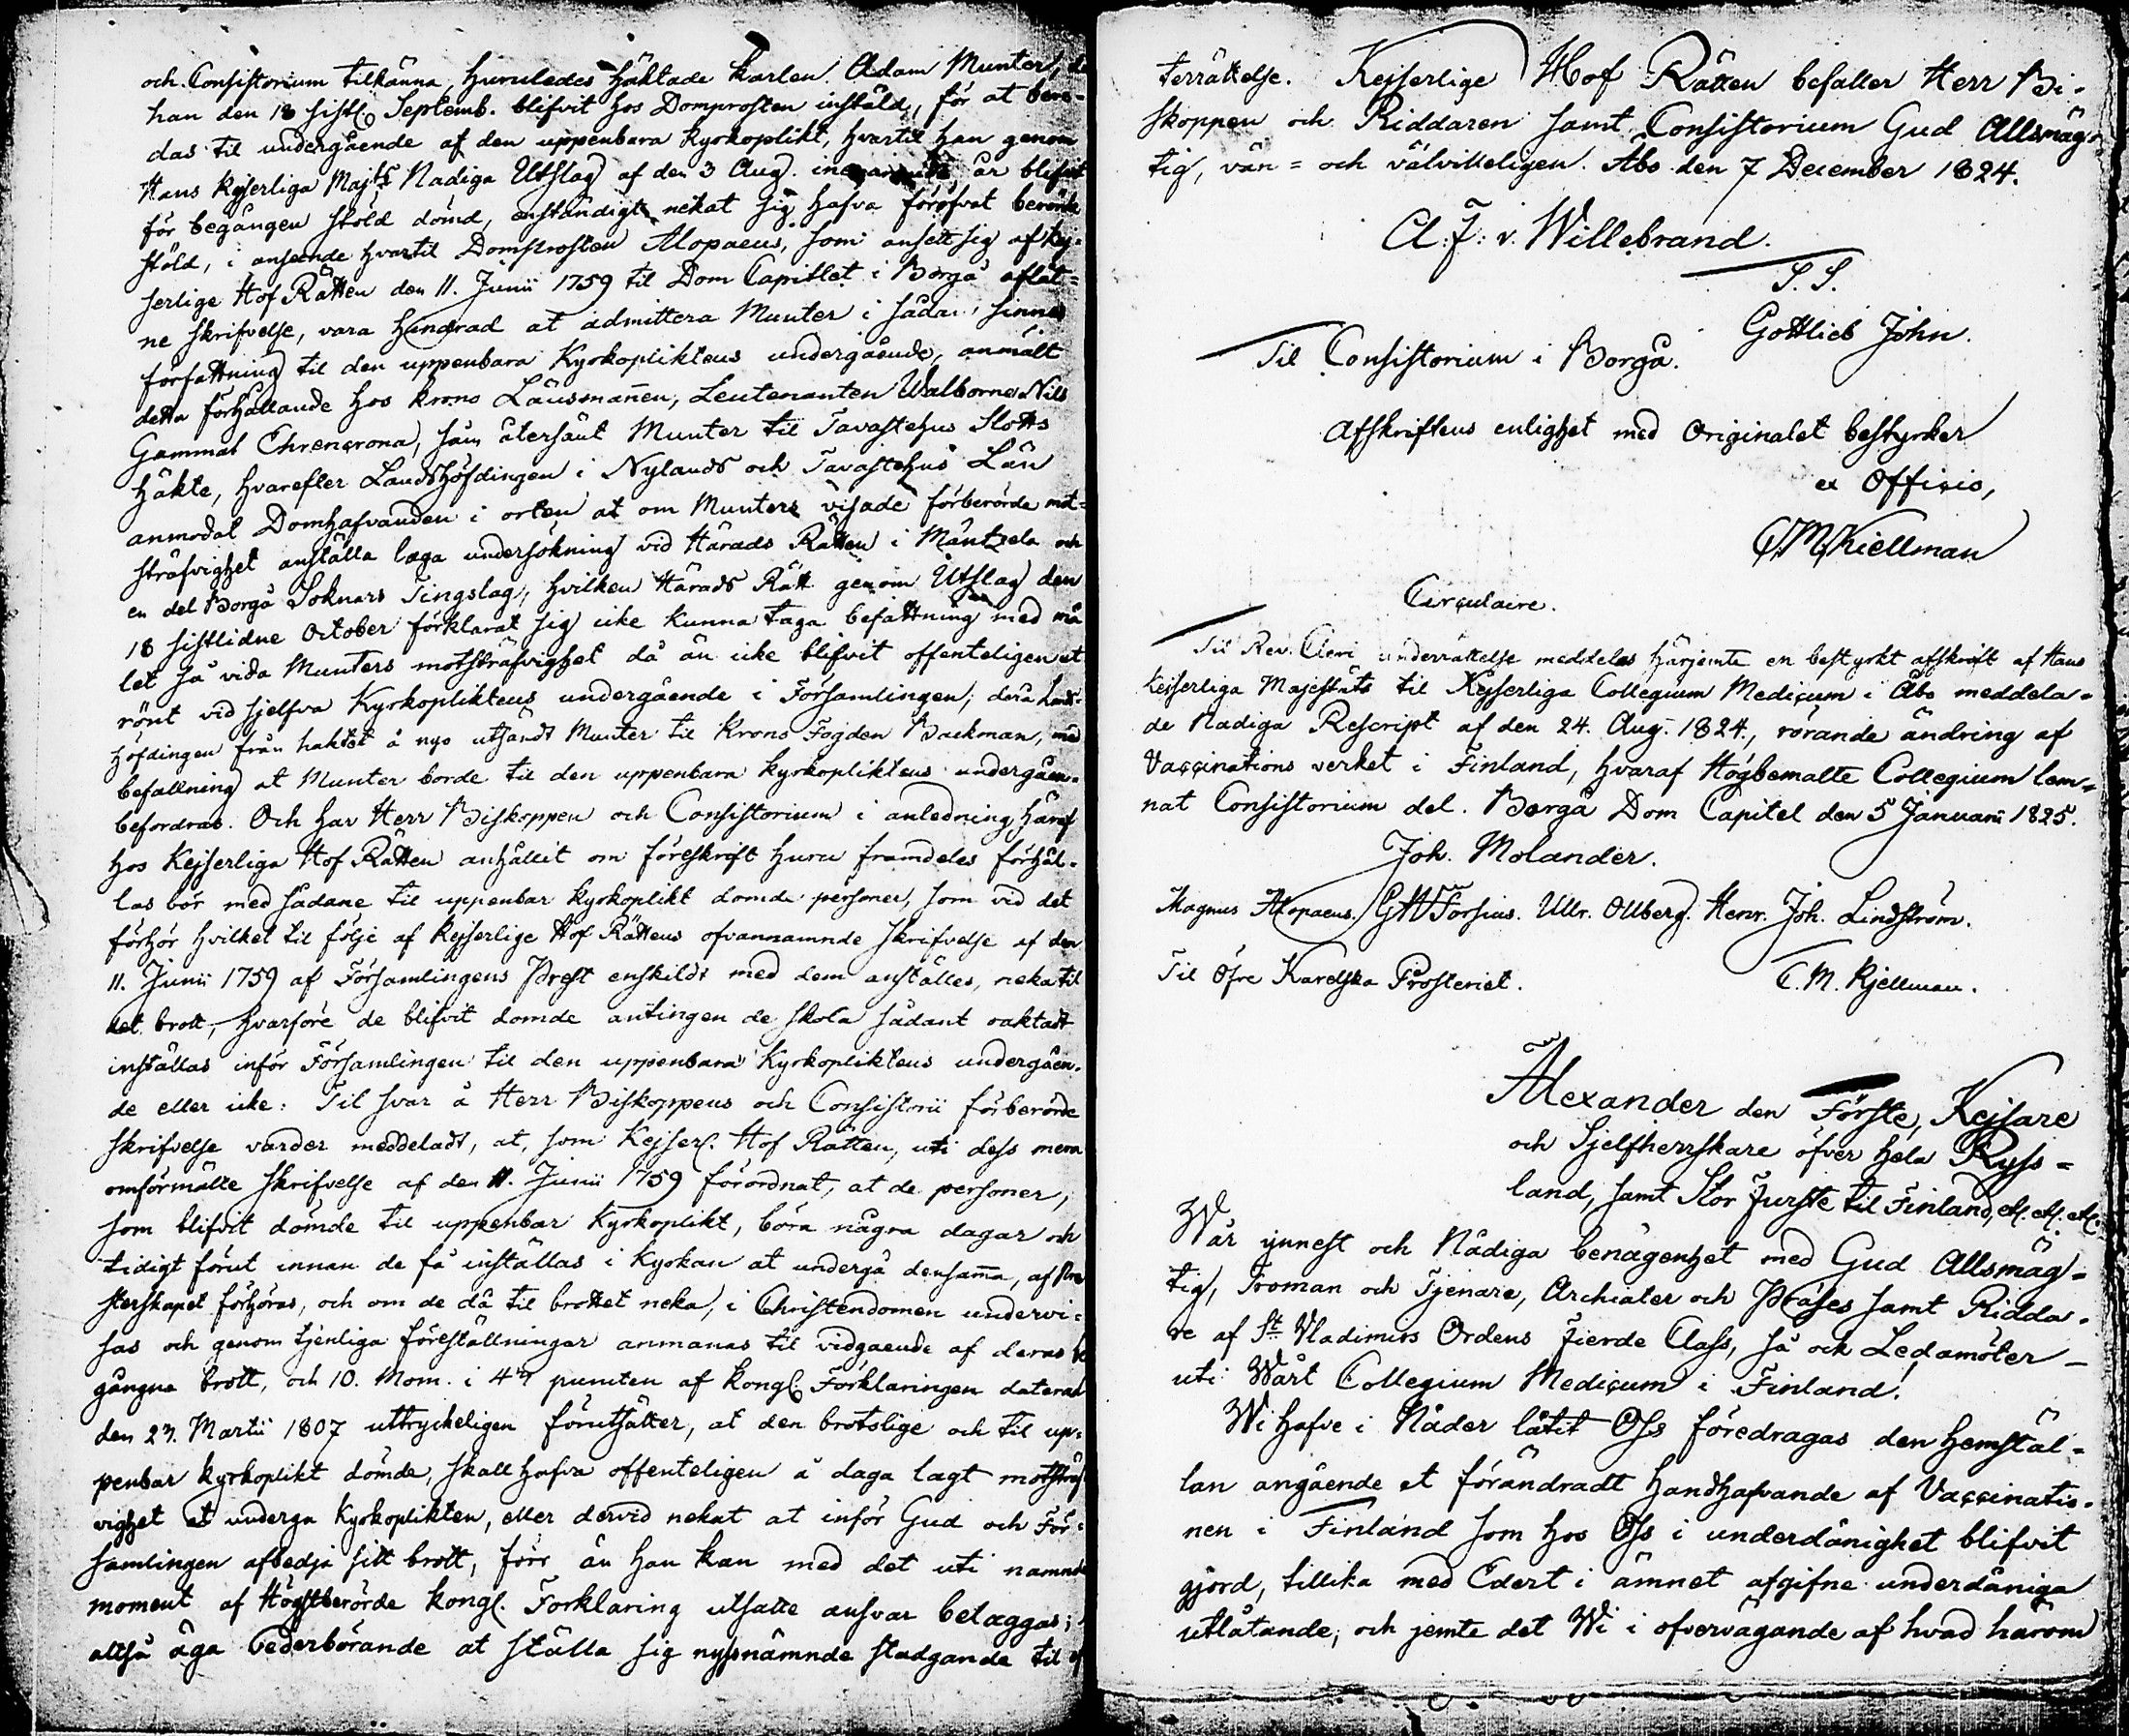 och Consistorium tilkänna, huruledes häktade karlen Adam Munter, då
han den 18 sistl. Septemb. blifvit hos Domprosten instäld, för at bere-
das til undergående af den uppenbara kyrkoplikt, hvartil han genom
Hans kejserliga Maj:ts Nådiga Utslag af den 3 Aug. är blifvit
för begången stöld dömd, enständigt nekat sig hafva föröfvat berörde
stöld, i anseende hvartil Domprosten Alopaeus, som ansett sig af kej-
serlige Hof Rätten den 11. Junii 1759 til Dom Capitlet i Borgå aflåt-
ne skrifvelse, vara hindrad at admittera Munter i sådan sinnes
författning til den uppenbara Kyrkopliktens undergående, anmält
detta förhållande hos krono Länsmannen, Leutenanten Walborne Nils
Gammal Ehrencrona, som återsänt Munter til Tavastehus Slotts
häkte, hvarefter Landshöfdingen i Nylands och Tavastehus Län
anmodat Domhafvanden i orten at om Munters visade förberörde mot-
sträfvighet anställa laga undersökning vid Härads Rätten i Mäntzelä och
en del Borgå Soknars Tingslag, hvilken Härads Rätt genom Utslag den
18 sistlidne October förklarat sig icke kunna taga befattning med må-
let så vida Munters motsträfvighet då än icke blifvit offenteligen ut
rönt vid sjelfva Kyrkopliktens undergående i Församlingen; dera Lands-
höfdingen från häktet å nyo utsändt Munter til Krono Fogden Backman, med
befallning at Munter borde til den uppenbara kyrkopliktens undergåen-
befordras. Och har Herr Biskoppen och Consistorium i anledning häraf
hos Kejserliga Hof Rätten anhållit om föreskrift huru framdeles förhål-
las bör med sådane til uppenbar kyrkoplikt dömde personer, som vid det
förhör hvilket til följe af kejserlige Hof Rättens ofvannämnde skrifvelse af den
11. Junii 1759 af Församlingens Prest enskildt med dem anställes, neka til
det brott, hvarföre de blifvit dömde antingen de skola sådant oaktadt
inställas inför Församlingen til den uppenbara Kyrkopliktens undergåen-
de eller icke: Til svar å Herr Biskoppens och Consistorii förberörde
skrifvelse varder meddeladt, at, som Kejserl. Hof Rätten, uti dess mera
omförmälte skrifvelse af den 11. Junii 1759 förordnat, at de personer,
som blifvit dömde til uppenbar kyrkoplikt, böra några dagar och
tidigt förut innan de få inställas i Kyrkan at undergå densamma, af Pre
sterskapet förhöras, och om de då til brottet neka, i Christendomen undervi-
sas och genom tjenliga föreställningar anmanas til vidgående af deras be
gångna brott, och 10. Mom. i 4de puncten af kongl. Förklaringen daterad
den 23. Martii 1807 uttryckeligen förutsätter, at den brotslige och til up-
penbar kyrkoplikt dömde, skall hafva offenteligen å daga lagt motsträf
vighet at undergå Kyrkoplikten, eller dervid nekat at inför Gud och För-
samlingen afbedja sitt brott, förr än han kan med det uti nämnde
moment af Högstberörde kongl. Förklaring utsatte ansvar beläggas;
altså äga Vederbörande at ställa sig nyssnämnde stadgande til ef
terrättelse. Kejserlige Hof Rätten befaller Herr Bi-
skoppen och Riddaren samt Consistorium Gud Allsmäg-
tig, vän- och välvilleligen. Åbo den 7 December 1824.
Cl: J: v. Willebrand.
S. S.
Gottlieb John.
Til Consistorium i Borgå.
Afskriftens enlighet med Originalet bestyrker
ex Officio,
CMKiellman
Circulaire.
Til Rev. Cleri underrättelse meddelas härjemte en bestyrkt afskrift af Hans
keisserliga Majestäts til Kejserliga Collegium Medicum i Åbo meddela-
de Nådiga Rescript af den 24. Aug. 1824., rörande ändring af
Vaccinations verket i Finland, hvaraf Högbemälte Collegium lem-
nat Consistorium del. Borgå Dom Capitel den 5 Januarii 1825.
Joh. Molander.
Magnus Alopaeus. GWForsius. Ullr. Ollberg. Henr. Joh. Lindström.
Til Öfre Karelska Prosteriet.
C. M. Kjellman.
Alexander den Förste, Kejsare
och Sjelfherrskare öfver hela Ryss-
land, samt Stor Furste til Finland, &c. &c. &c.
Wår ynnest och Nådiga benägenhet med Gud Allsmäg-
tig, Troman och Tjenare, Archiater och Præses samt Ridda-
re af St. Vladimirs Ordens fierde Class, så ock Ledamöter
uti Wårt Collegium Medicum i Finland!
Wi hafve i Nåder låtit Oss föredragas den hemstäl-
lan angående et förändradt handhafvande af Vaccinatio-
nen i Finland som hos Oss i underdånighet blifvit
gjord, tillika med Edert i ämnet afgifne underdåniga
utlåtande; och jemte det Wi i öfvervägande af hvad härom